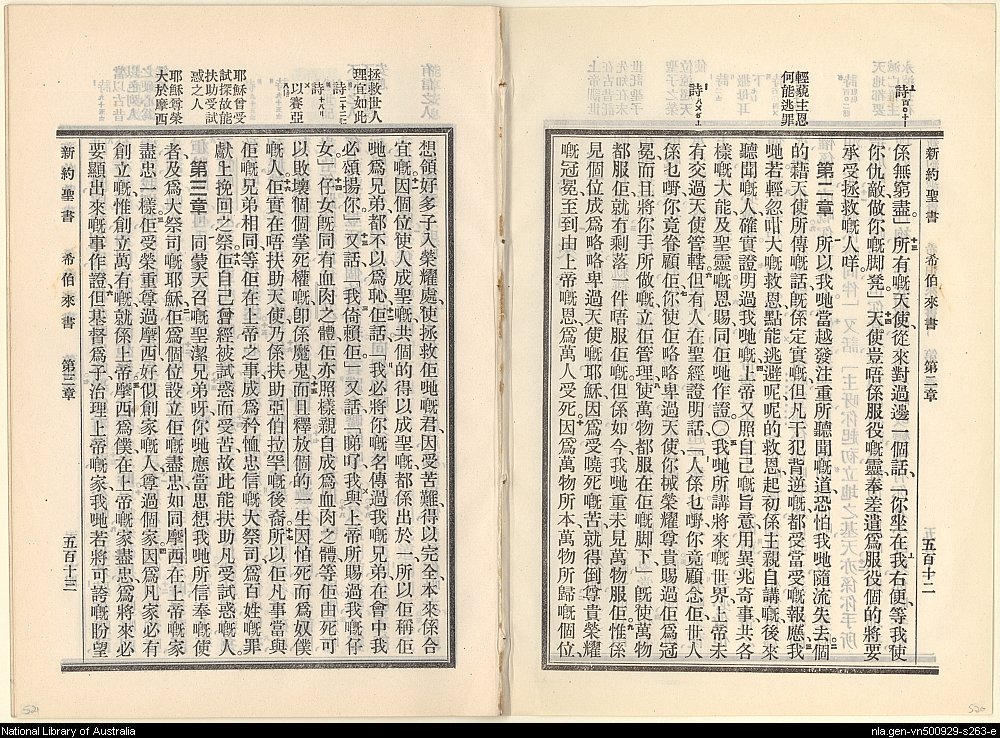 輕藐主恩
何能逃罪
詩百〇十一
詩八又百〇上
新約聖書　希伯來書　第二章　五百十二
係無窮盡」所有嘅天使從來對過邊一個話、「你坐在我右便、等我使
你仇敵、做你嘅脚凳」。天使豈唔係服役嘅靈、奉差遣爲服役個的將要
承受拯救嘅人咩。
第二章　所以我哋當越發注重所聽聞嘅道、恐怕我哋隨流失去、個
的藉天使所傳嘅話、既係定實嘅、但凡干犯背逆嘅、都受當受嘅報應、我
哋若輕忽咁大嘅救恩、點能逃避呢、呢的救恩起初係主親自講嘅、後來
聽聞嘅人、確實證明過我哋嘅、上帝又照自己嘅旨意、用異兆奇事共各
樣嘅大能及聖靈嘅恩賜、同佢哋作證。〇我哋所講將來嘅世界、上帝未
有交過天使管轄。但有人在聖經證明話、「人係乜嘢、你竟顧念佢、世人
係乜嘢、你竟眷顧佢、你使佢略略卑過天使、你械榮耀尊貴賜過佢爲冠
冕、而且將你手所做嘅立佢管理、使萬物都服在佢嘅脚下」。既使萬物
都服佢、就冇剩落一件唔服佢嘅。但係如今我哋重未見萬物服佢、惟係
見個位成爲略略卑過天使嘅耶穌、因爲受嘵死嘅苦、就得倒尊貴榮耀
嘅冠冕、至到由上帝嘅恩、爲萬人受死。因爲萬物所本、萬物所歸嘅個位、
拯救世人
理宜如此
詩二十二
以賽亞
耶穌曾受
試探故能
扶助受試
惑之人
耶穌尊榮
大於摩西
想領好多子入榮耀處、使拯救佢哋嘅君、因受苦難、得以完全、本來係合
宜嘅。因個位使人成聖嘅、共個的得以成聖嘅、都係出於一、所以佢稱佢
哋爲兄弟、都不以爲恥、佢話、「我必將你嘅名傳過我嘅兄弟、在會中我
必頌揚你」。又話、「我倚賴佢」。又話、「睇吓、我與上帝所賜過我嘅仔
女」。仔女既同有血肉之體、佢亦照樣親自成爲血肉之體、等佢由死可
以敗壞個個掌死權嘅、卽係魔鬼、而且釋放個的一生因怕死而爲奴僕
嘅人。佢實在唔扶助天使、乃係扶助亞伯拉罕嘅後裔。所以佢凡事當與
佢嘅兄弟相同、等佢在上帝之事、成爲矜恤忠信嘅大祭司、爲百姓嘅罪
獻上挽回之祭。佢自己曾經被試惑而受苦、故此能扶助凡受試惑嘅人。
第三章　同蒙天召嘅聖潔兄弟呀、你哋應當思想我哋所信奉嘅使
者、及爲大祭司嘅耶穌、佢爲個位設立佢嘅盡忠、如同摩西在上帝嘅家
盡忠一樣。佢受榮重尊過摩西、好似創家嘅人、尊過個家、因爲凡家必有
創立嘅、惟創立萬有嘅、就係上帝、摩西爲僕、在上帝嘅家盡忠、爲將來必
要顯出來嘅事作證、但基督爲子、治理上帝嘅家、我哋若將可誇嘅盼望
新約聖書　希伯來書　第三章　五百十三
521
520
National Library of Australia
nla.gen-vn500929-s263-e